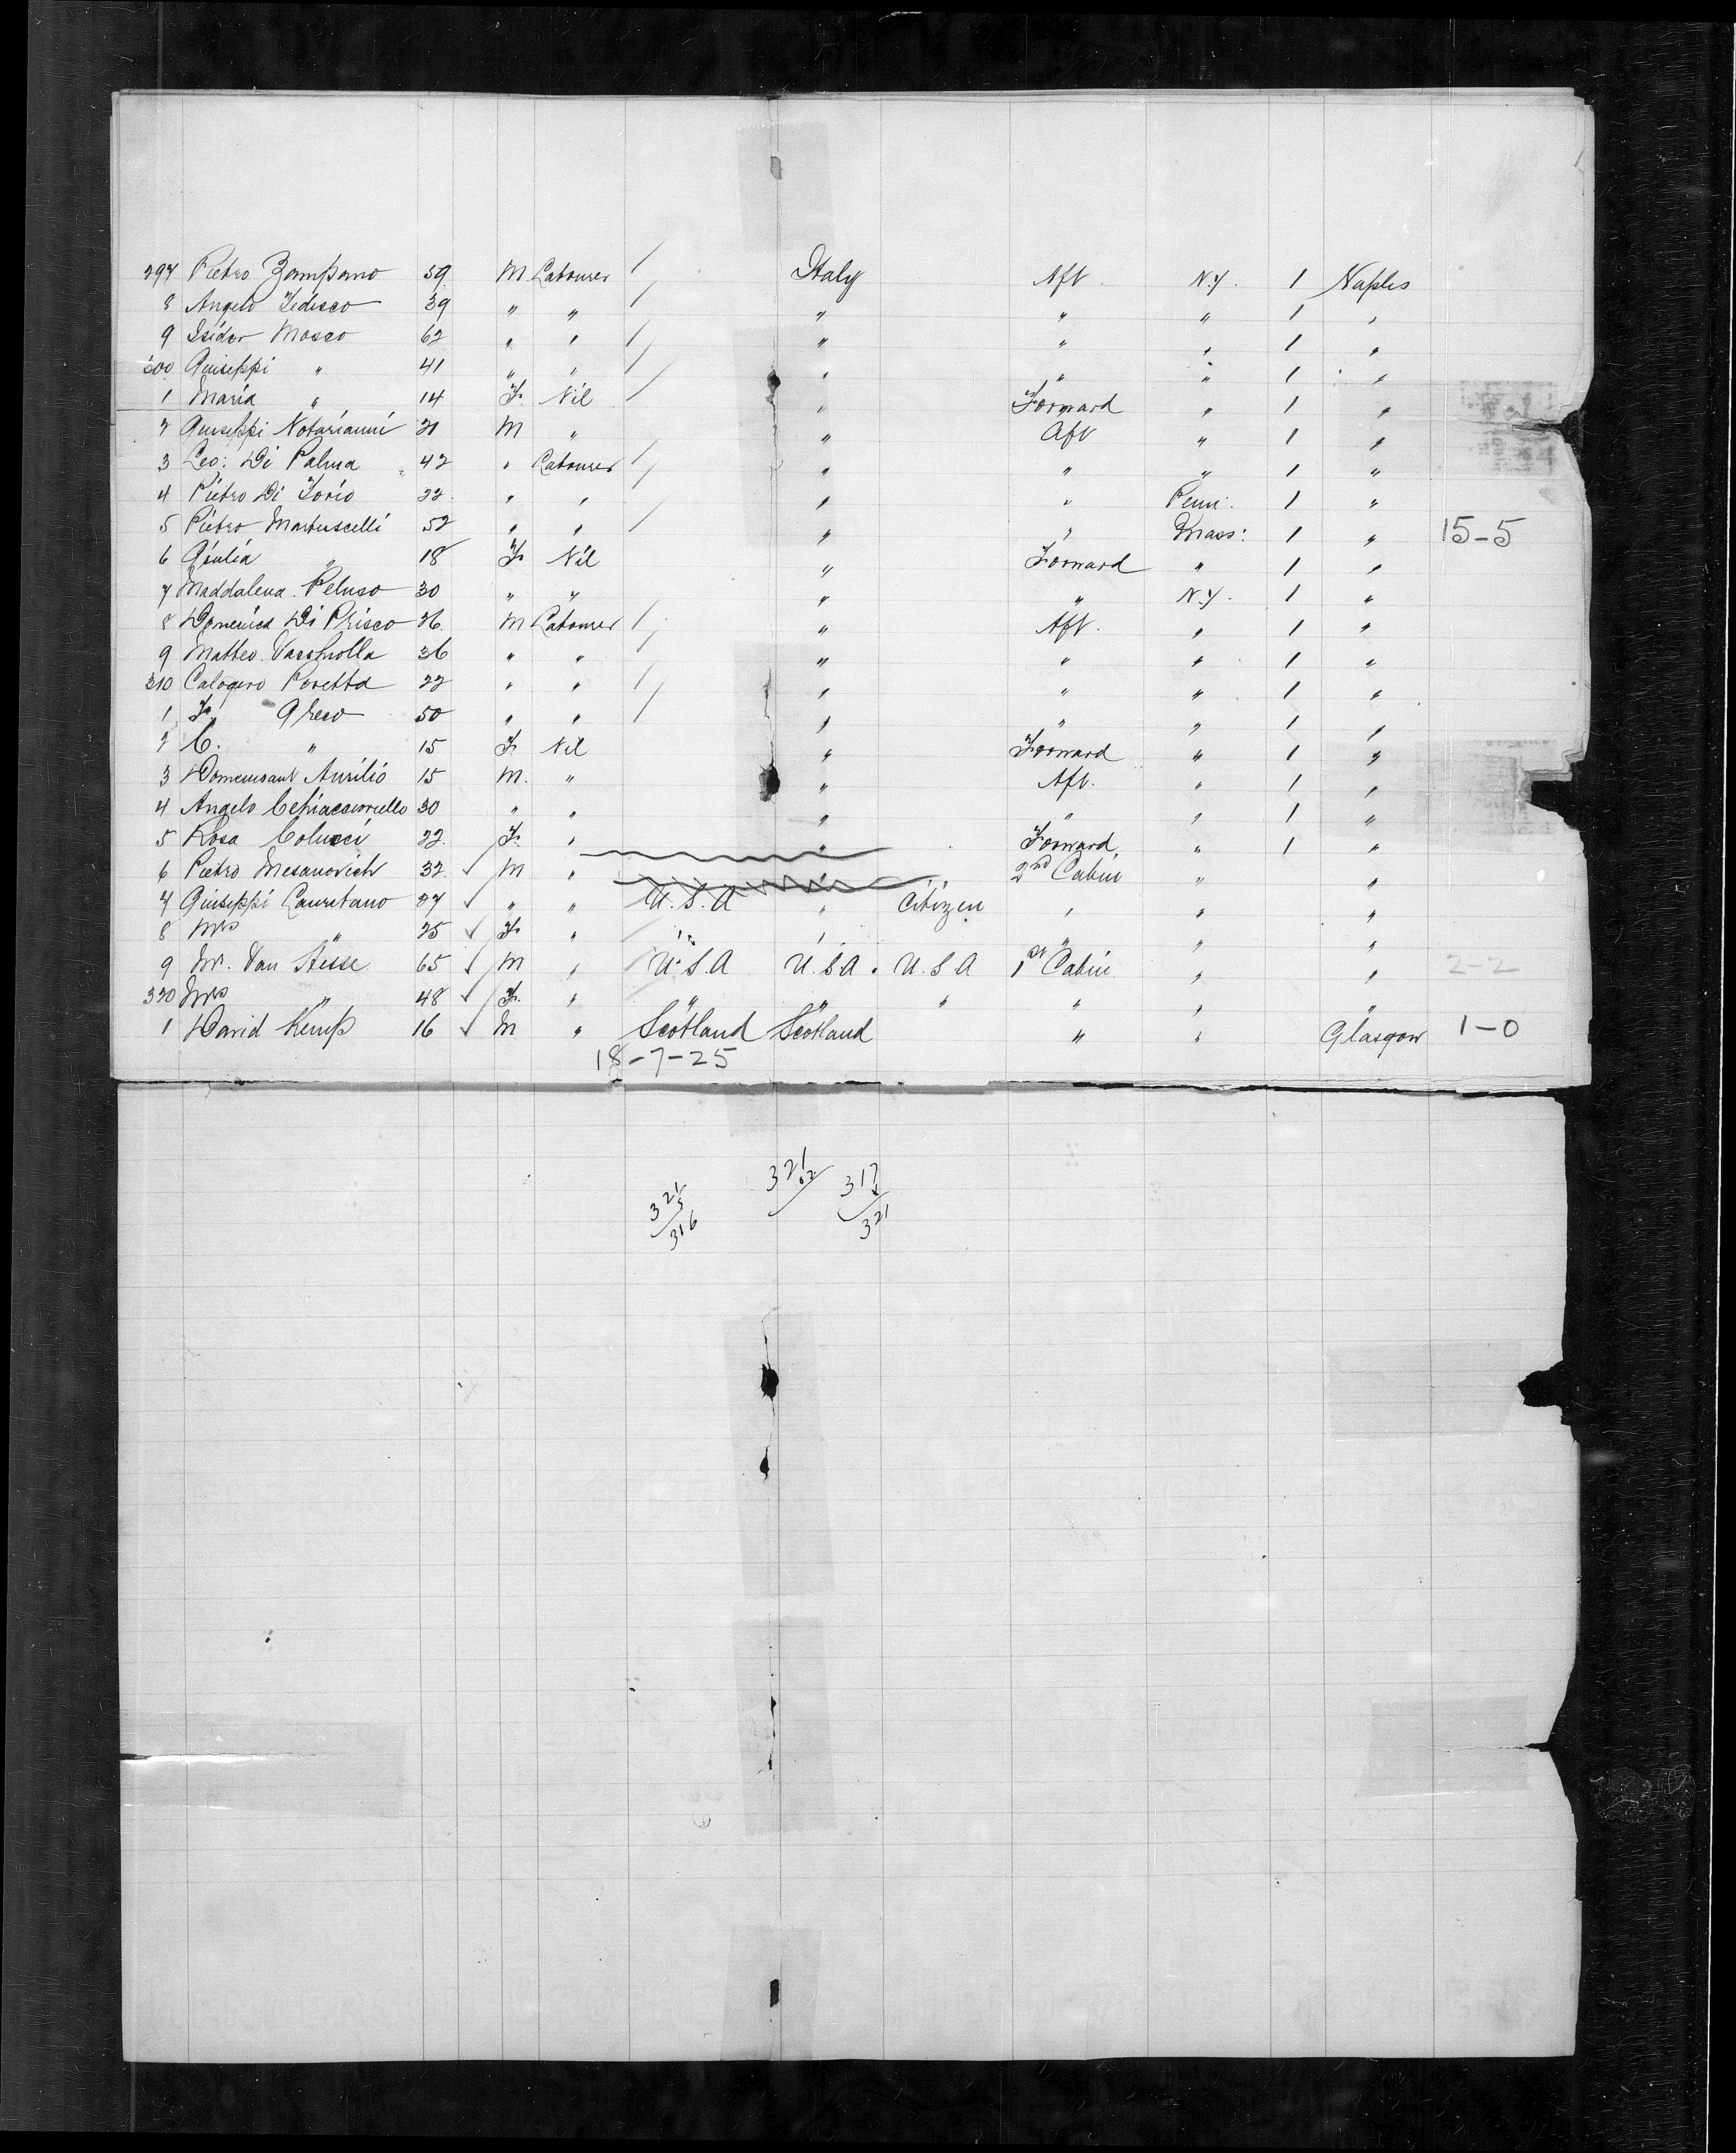 297 Pietro Zampano 59 M Labourer / Italy Aft. N.Y. 1 Naples
8 Angelo Tedesco 39 " " / " " " 1 "
9 Isidor Mosco 62 " " / " " " 1 "
300 Guiseppi " 41 " " / " " " 1 "
1 Maria " 14 F. Nil / " Forward " 1 "
2 Guiseppi Notarianni 21 M " " Aft " 1 "
3 Leo: Di Palma 42 " Labourer / " " " 1 "
4 Pietro Di Iorio 22 " " " " Penn: 1 "
5 Pietro Martuscelli 52 " " / " " Mass: 1 " 15-5
6 Giulia " 18 F Nil " Forward " 1 "
7 Maddalena Peluso 30 " " " " N.Y. 1 "
8 Domenico Di Prisco 26 M Labourer / " Aft. " 1 "
9 Matteo 36 " " " " " 1 "
310 Calogero Poretta 22 " " / " " " 1 "
1 F. Greco 50 " " / " " " 1 "
2 C. " 15 F Nil " Forward " 1 "
3 Aurilio 15 M. " " Aft. " 1 "
4 Angelo 30 " " " " " 1 "
5 Rosa Colucci 22 F. " " Forward " 1 "
6 Pietro Mesanovich 32 ✓ M " " 2nd Cabin " "
7 Guiseppi Cauretano 27 ✓ " " U.S.A " Citizen " " "
8 Mrs " 25 ✓ F. " " " " " " "
9 Mr. Van Hesse 65 ✓ M " U.S.A U.S.A. U.S.A 1st Cabin " " 2-2
320 Mrs " 48 ✓ F. " " " " " " "
1 David Kemp 16 ✓ M " Scotland Scotland " " Glasgow 1-0
18-7-25
321 317
321 5 02 4
316 321